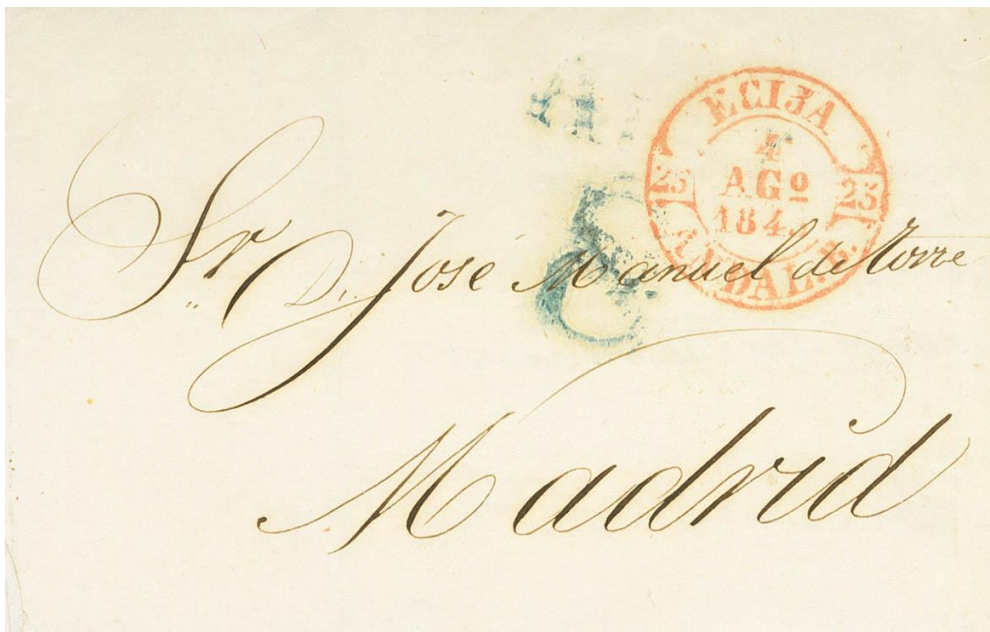 ECIJA
4
AGº
184
25 25
ANDAL. B.
8
Sr. D. José Manuel de Torre
Madrid